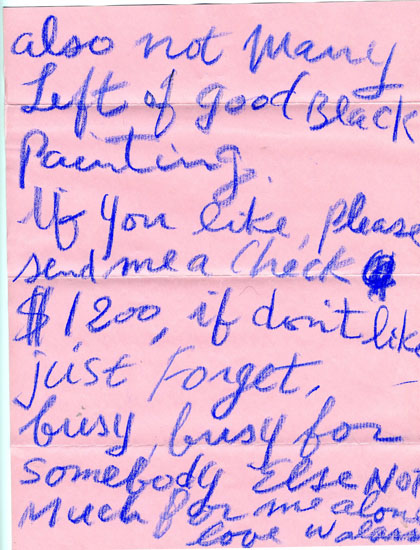 also not Many
Left of good Black
Painting.
If you like, please
send me a check
$1,200, if don't like
just Forget,
busy, busy for
Somebody Else Not
Much for me alone
love Walasse